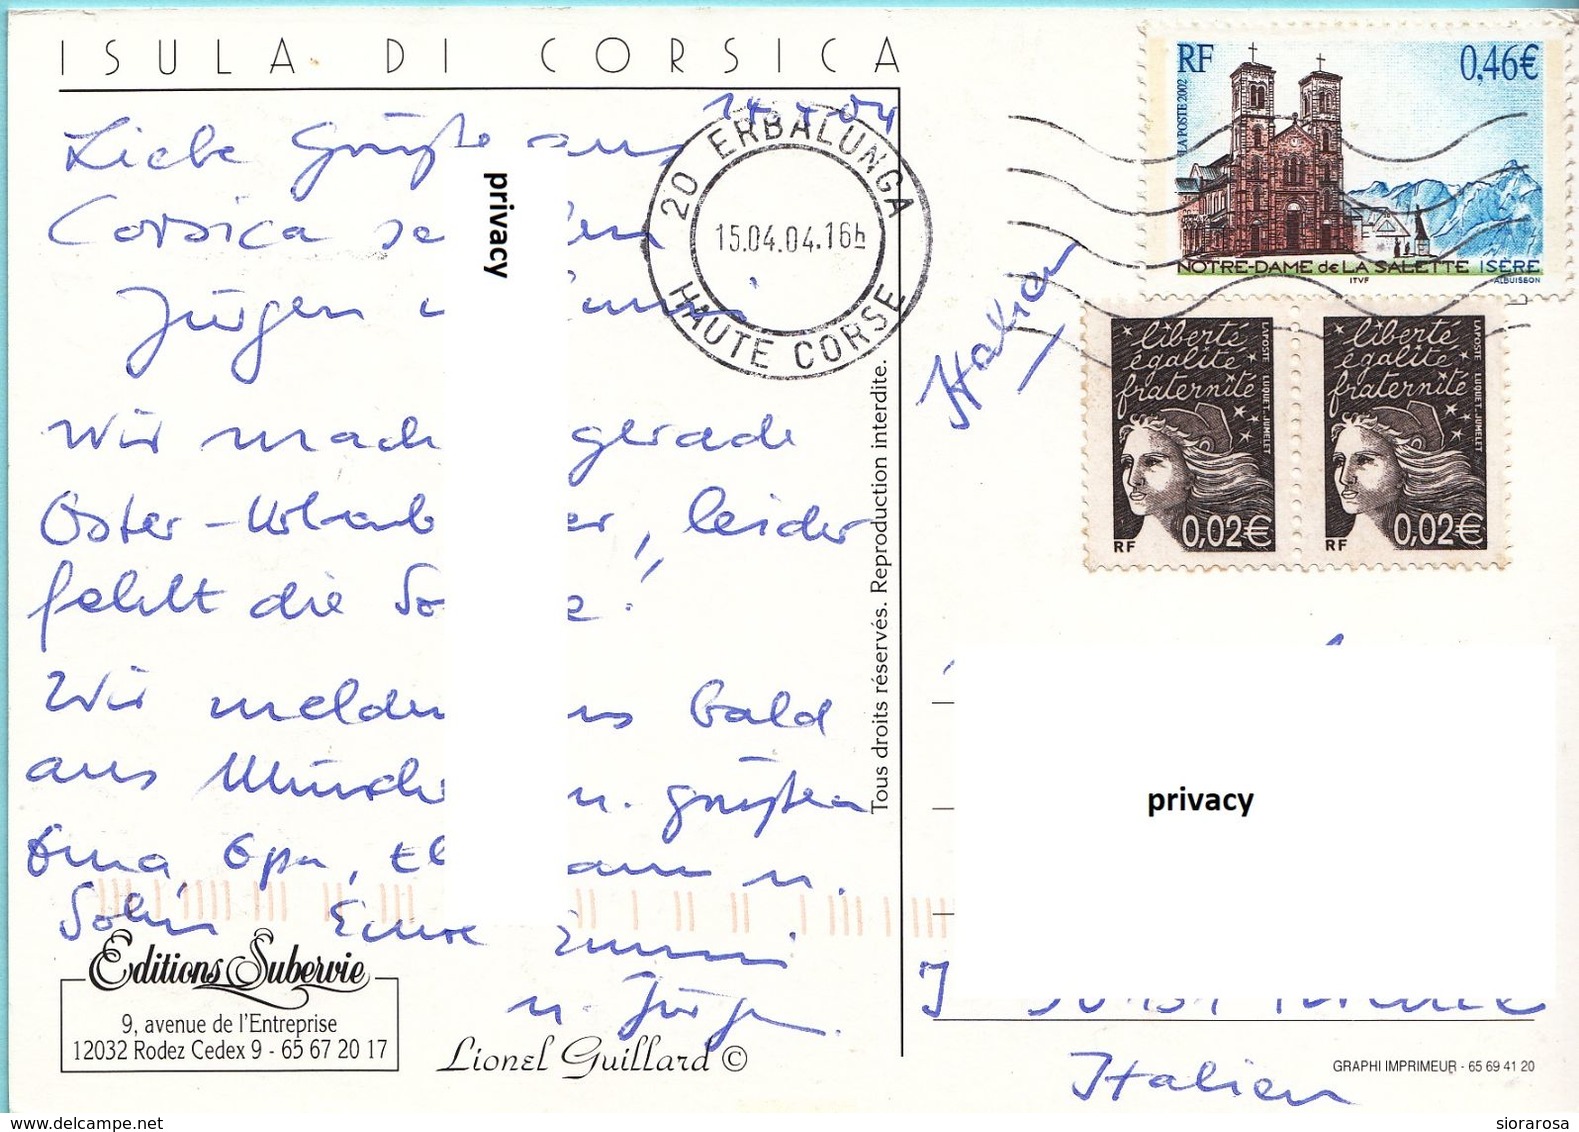 ISULA DI CORSICA
14.4.04
Liebe Grüße aus
Corsica se den
Jürgen u
Wir mach gerade
Oster-Urlaub er, leider
fehlt die So e!
Wir melden uns bald
aus Münch u. grüßen
Oma, Opa, u.
Eure
u. Jürgen.
privacy
20 ERBALUNGA
15.04.04.16h
HAUTE CORSE
Tous droits réservés. Reproduction interdite.
Editions Subervie
9, avenue de l'Entreprise
12032 Rodez Cedex 9 - 65 67 20 17
Lionel Guillard ©
RF 0,46€
LA POSTE 2002
NOTRE-DAME de LA SALETTE ISÈRE
ITVF ALBUISSON
Italien
liberté
égalité
fraternité
LAPOSTE LUQUET-JUMELET
0,02€
RF
liberté
égalité
fraternité
LAPOSTE LUQUET-JUMELET
0,02€
RF
privacy
I
Italien
GRAPHI IMPRIMEUR - 65 69 41 20
www.delcampe.net
siorarosa